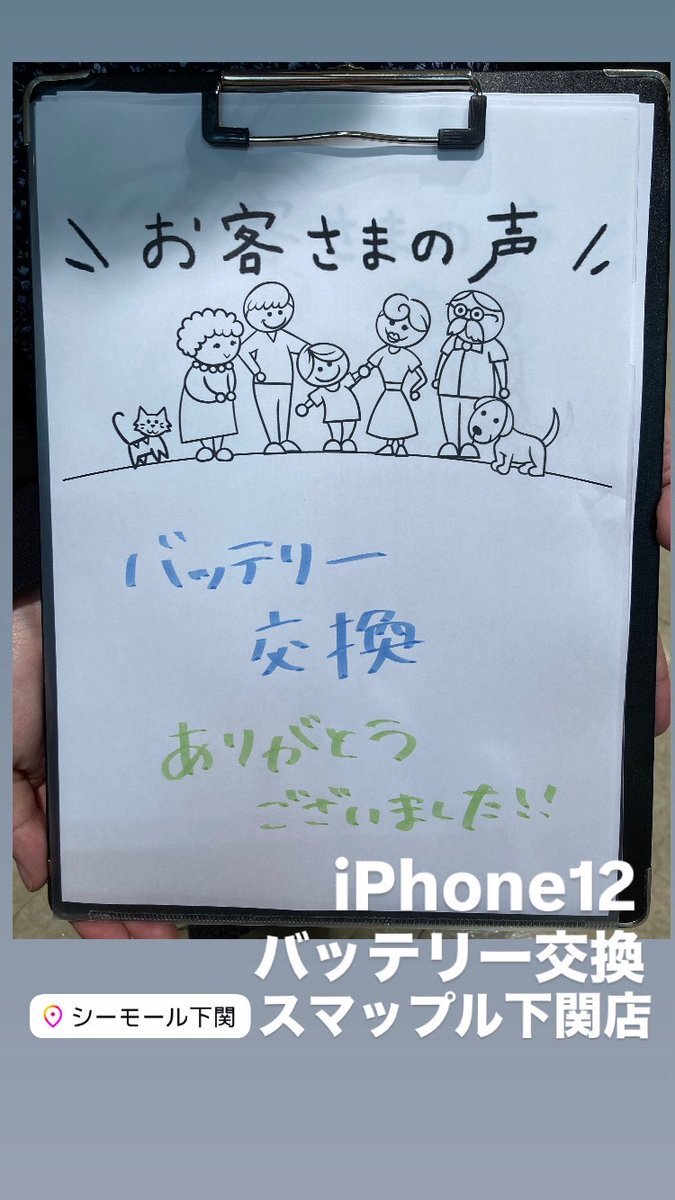 \ お客さまの声 /
バッテリー
交換
ありがとう
ございました!!
iPhone12
バッテリー交換
シーモール下関
スマップル下関店